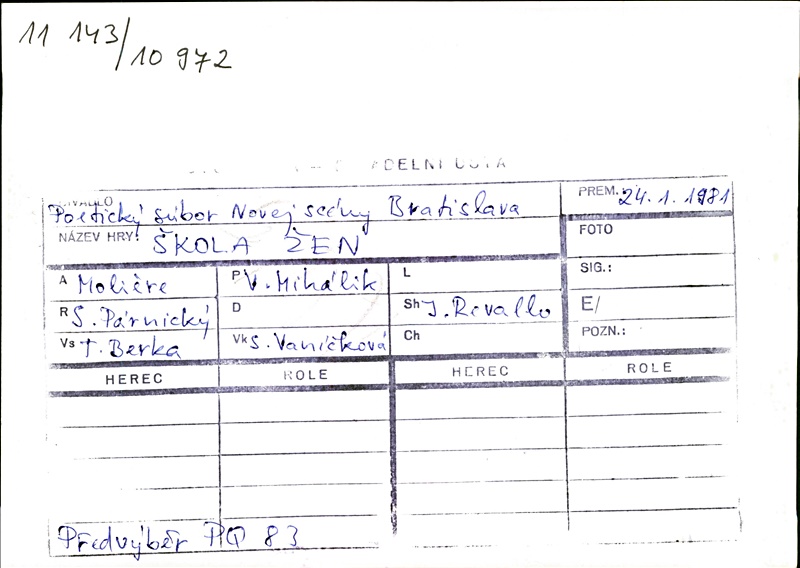 11 143/10 972
Poetický súbor Novej scény Bratislava
PREM. 24. 1. 1981
NÁZEV HRY: ŠKOLA ŽEN
FOTO
A Molière P V. Mihálik L
SIG.:
R S. Párnický D Sh J. Revallo
E/
Vs T. Berka Vk S. Vaníčková Ch
POZN.:
HEREC ROLE HEREC ROLE
Předvýběr PQ 83